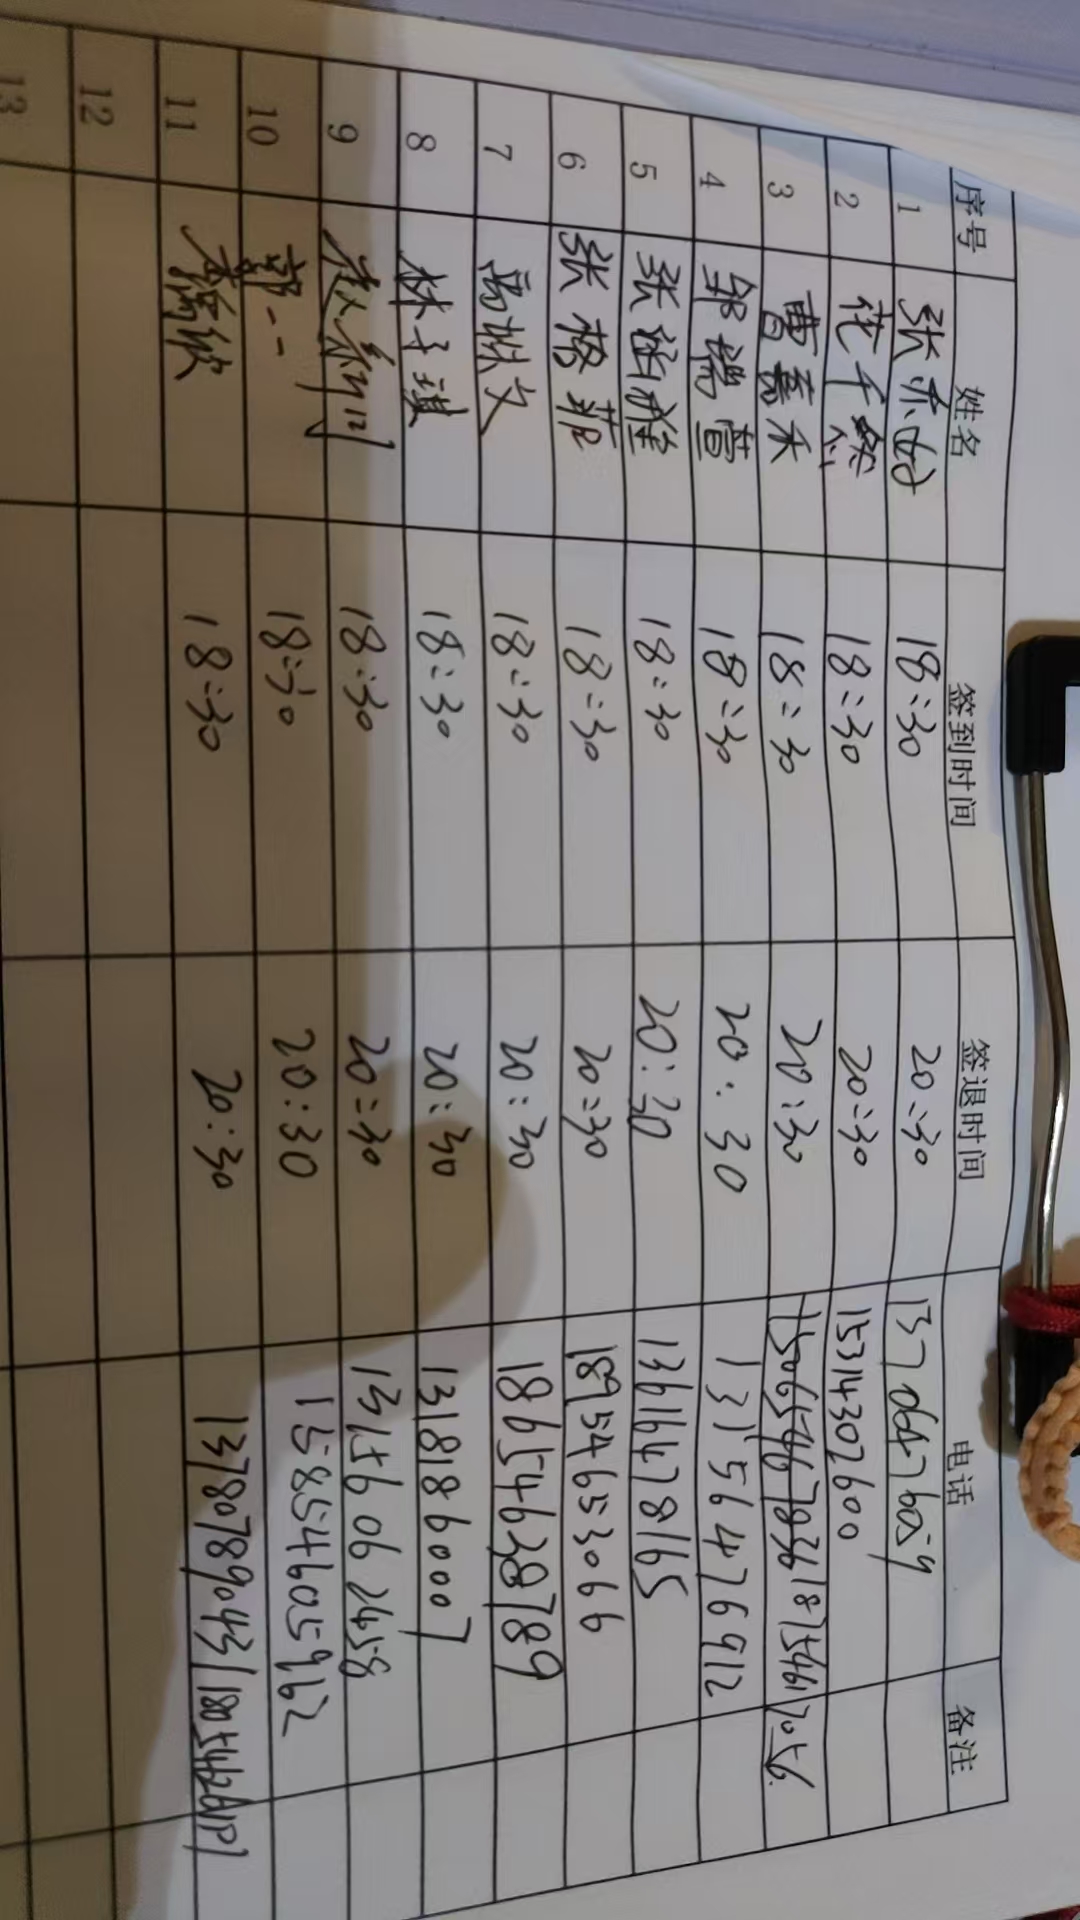 序号 姓名 签到时间 签退时间 电话 备注
1 张亦 18:30 20:30
2 花千 18:30 20:30 15314302600
3 曹嘉禾 18:30 20:30 15065467836 18754617056
4 邹瑞萱 18:30 20:30 13156476912
5 张雅 18:30 20:30 13616478165
6 张格菲 18:30 20:30 18954653066
7 18:30 20:30 18654638789
8 林子琪 18:30 20:30 13181860007
9 18:30 20:30 13156062458
10 郭一一 18:30 20:30 15854605962
11 18:30 20:30 13780789043
12
13